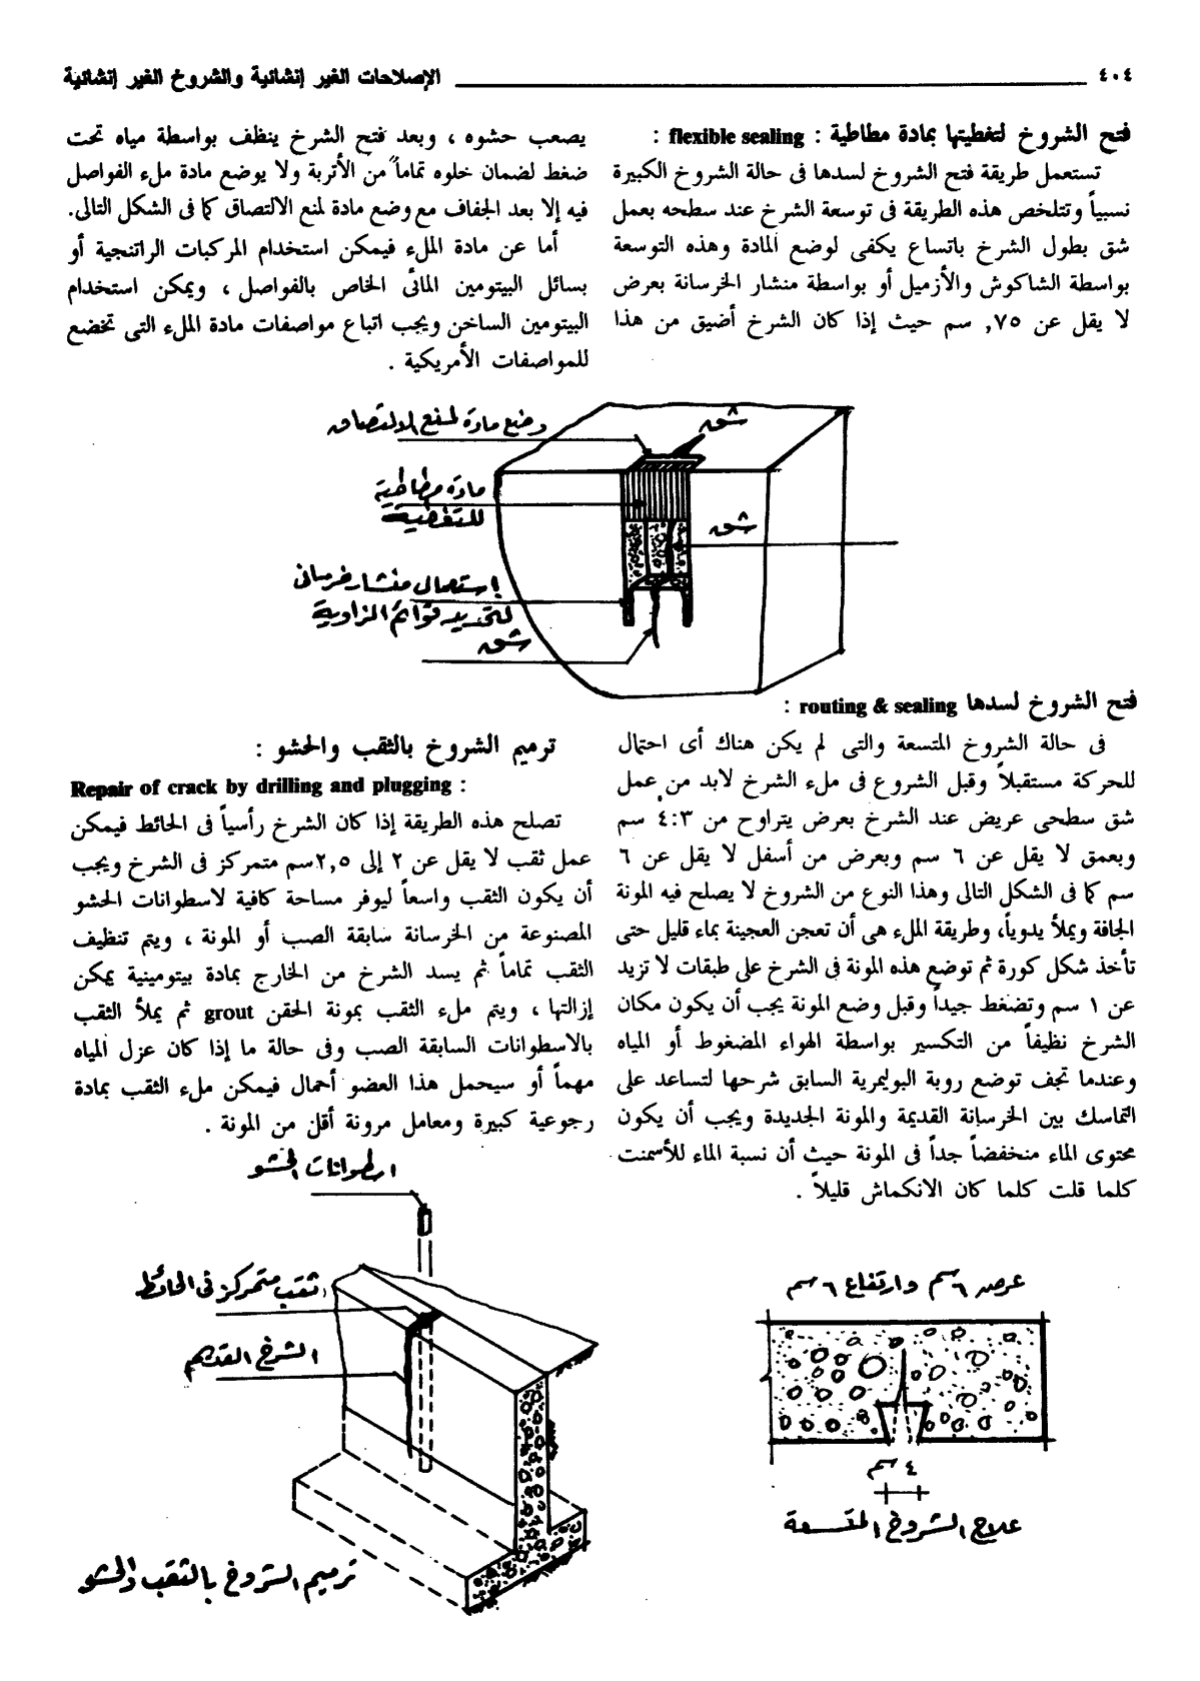 ٤٠٤
الإصلاحات الغير إنشائية والشروخ الغير إنشائية
فتح الشروخ لتغطيتها بمادة مطاطية : flexible sealing :
تستعمل طريقة فتح الشروخ لسدها فى حالة الشروخ الكبيرة
نسبياً وتتلخص هذه الطريقة فى توسعة الشرخ عند سطحه بعمل
شق بطول الشرخ باتساع يكفى لوضع المادة وهذه التوسعة
بواسطة الشاكوش والأزميل أو بواسطة منشار الخرسانة بعرض
لا يقل عن ٧٥, سم حيث إذا كان الشرخ أضيق من هذا
يصعب حشوه ، وبعد فتح الشرخ ينظف بواسطة مياه تحت
ضغط لضمان خلوه تماماً من الأتربة ولا يوضع مادة ملء الفواصل
فيه إلا بعد الجفاف مع وضع مادة لمنع الالتصاق كما فى الشكل التالى.
أما عن مادة الملء فيمكن استخدام المركبات الراتنجية أو
بسائل البيتومين المائى الخاص بالفواصل ، ويمكن استخدام
البيتومين الساخن ويجب اتباع مواصفات مادة الملء التى تخضع
للمواصفات الأمريكية .
وضع مادة لمنع الالتصاق
شق
مادة مطاطية
للتغطية
شق
استعمال منشار خرسانى
لتحديد قوائم الزاوية
شق
فتح الشروخ لسدها routing & sealing :
فى حالة الشروخ المتسعة والتى لم يكن هناك أى احتمال
للحركة مستقبلاً وقبل الشروع فى ملء الشرخ لابد من عمل
شق سطحى عريض عند الشرخ بعرض يتراوح من ٤:٣ سم
وبعمق لا يقل عن ٦ سم وبعرض من أسفل لا يقل عن ٦
سم كما فى الشكل التالى وهذا النوع من الشروخ لا يصلح فيه المونة
الجافة ويملأ يدوياً، وطريقة الملء هى أن تعجن العجينة بماء قليل حتى
تأخذ شكل كورة ثم توضع هذه المونة فى الشرخ على طبقات لا تزيد
عن ١ سم وتضغط جيداً وقبل وضع المونة يجب أن يكون مكان
الشرخ نظيفاً من التكسير بواسطة الهواء المضغوط أو المياه
وعندما تجف توضع روبة البوليمرية السابق شرحها لتساعد على
التماسك بين الخرسانة القديمة والمونة الجديدة ويجب أن يكون
محتوى الماء منخفضاً جداً فى المونة حيث أن نسبة الماء للأسمنت
كلما قلت كلما كان الانكماش قليلاً .
عرض ٦سم وارتفاع ٦سم
٤ سم
علاج الشروخ المتسعة
ترميم الشروخ بالثقب والحشو :
Repair of crack by drilling and plugging :
تصلح هذه الطريقة إذا كان الشرخ رأسياً فى الحائط فيمكن
عمل ثقب لا يقل عن ٢ إلى ٢,٥سم متمركز فى الشرخ ويجب
أن يكون الثقب واسعاً ليوفر مساحة كافية لاسطوانات الحشو
المصنوعة من الخرسانة سابقة الصب أو المونة ، ويتم تنظيف
الثقب تماماً ثم يسد الشرخ من الخارج بمادة بيتومينية يمكن
إزالتها ، ويتم ملء الثقب بمونة الحقن grout ثم يملأ الثقب
بالاسطوانات السابقة الصب وفى حالة ما إذا كان عزل المياه
مهماً أو سيحمل هذا العضو أحمال فيمكن ملء الثقب بمادة
رجوعية كبيرة ومعامل مرونة أقل من المونة .
اسطوانات الحشو
ثقب متمركز فى الحائط
الشرخ القديم
ترميم الشروخ بالثقب والحشو